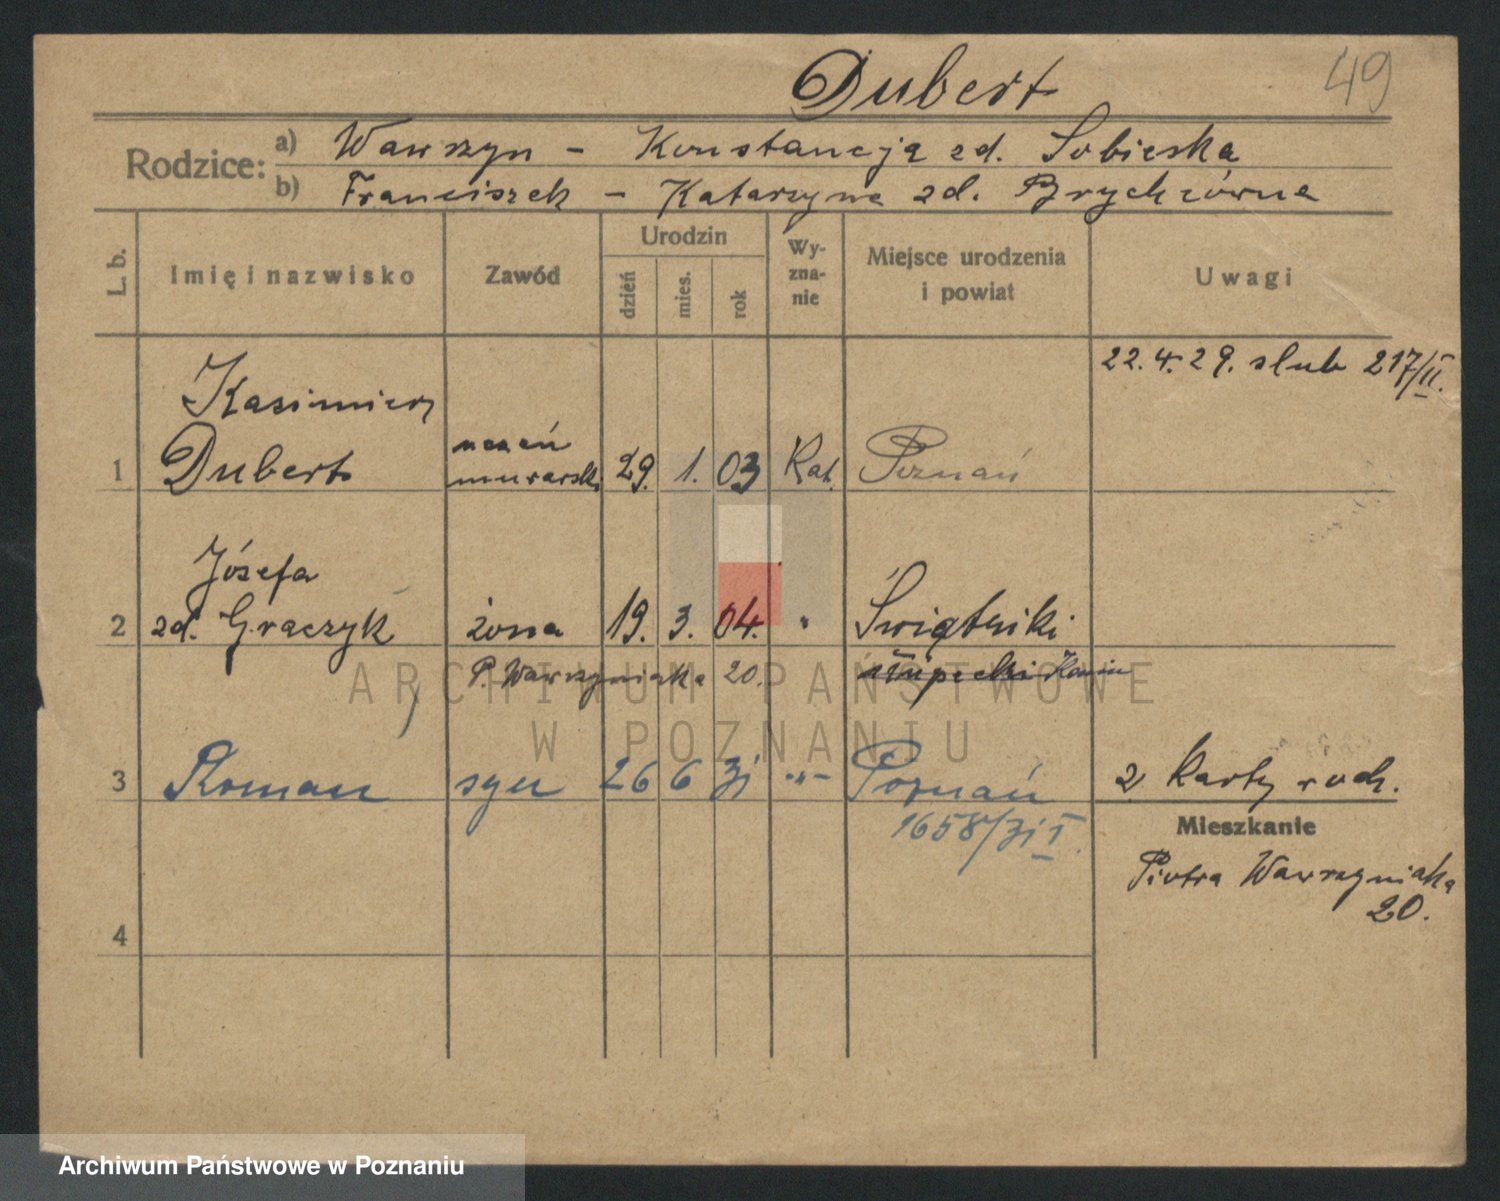 Dubert
49
Rodzice:
a) Wawrzyn - Konstancja zd. Sobieska
b) Franciszek - Katarzyna zd. Brychcówna
L. b.
Imię i nazwisko
Zawód
Urodzin
dzień
mies.
rok
Wy-
zna-
nie
Miejsce urodzenia
i powiat
Uwagi
22.4.29. slub 217/II.
Kasimierz
1 Dubert uczeń murarski 29. 1. 03 Kat. Poznań
Józefa
2 zd. Graczyk żona 19. 3. 04. " Świątniki
P. Wawrzyniaka 20. słupecki Konin
ARCHIWUM PAŃSTWOWE
W POZNANIU
3 Roman syn 26 6 31 -"- Poznań 2 Karty rodz.
1658/31 I.
Mieszkanie
Piotra Wawrzyniaka
20.
4
Archiwum Państwowe w Poznaniu